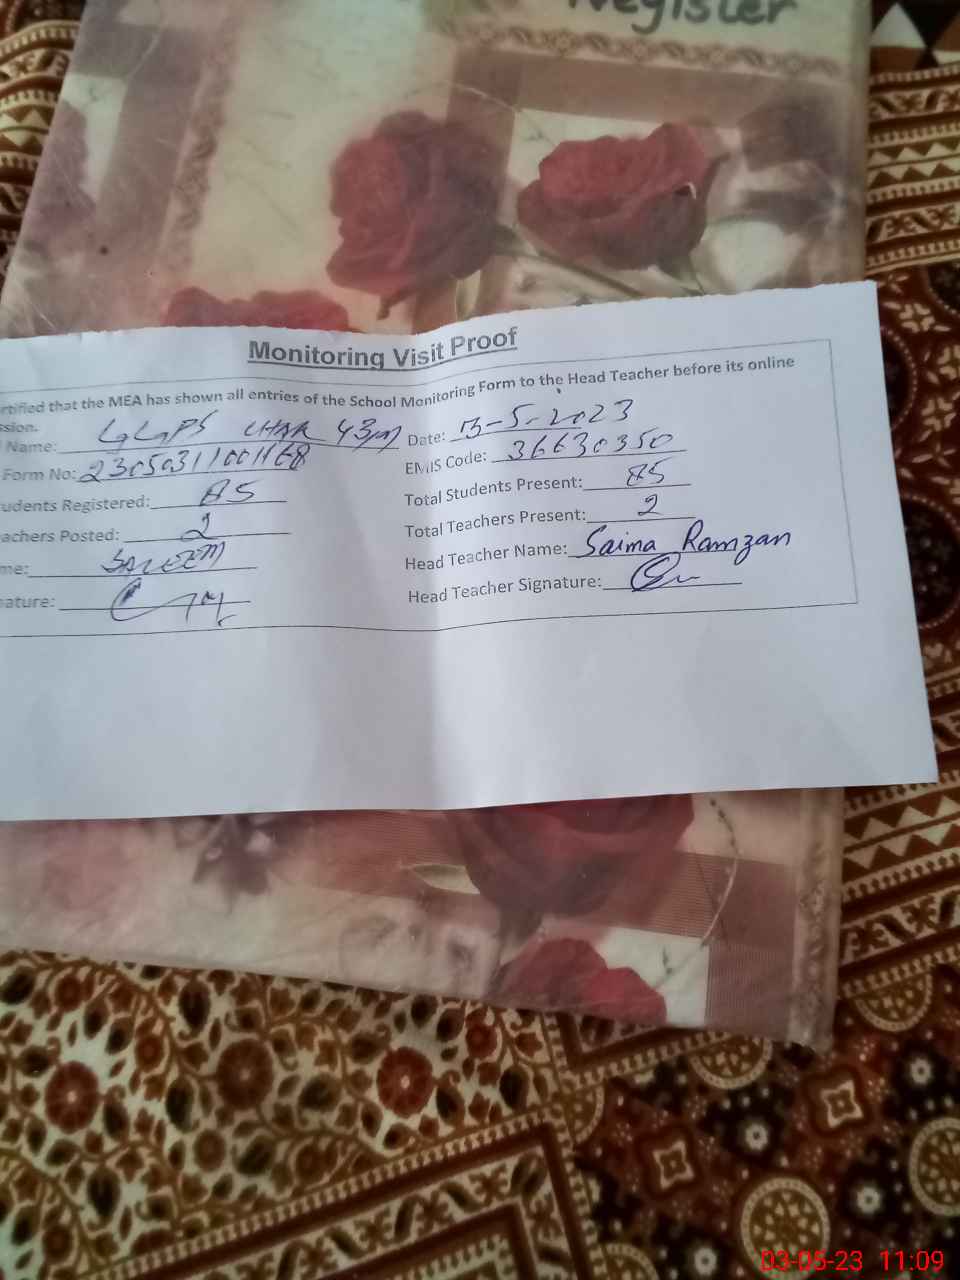 Register
Monitoring Visit Proof
rtified that the MEA has shown all entries of the School Monitoring Form to the Head Teacher before its online
ssion.
Name: GGPS CHAK 43M Date: 03-5-2023
Form No: 23050311001168 EMIS Code: 36630350
udents Registered: 85 Total Students Present: 85
achers Posted: 2 Total Teachers Present: 2
me: SALEEM Head Teacher Name: Saima Ramzan
nature: Head Teacher Signature:
03-05-23 11:09